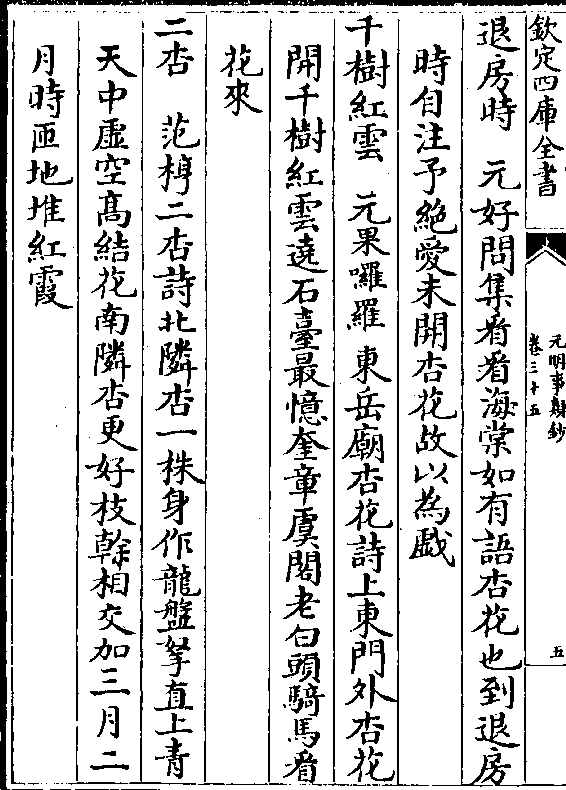 欽定四庫全書
元明事類鈔
卷三十五
五
退房時　元好問集看看海棠如有語杏花也到退房
時自注予絶愛未開杏花故以為戲
千樹紅雲　元果囉羅　東岳廟杏花詩上東門外杏花
開千樹紅雲遶石臺最憶奎章虞閣老白頭騎馬看
花來
二杏　范梈二杏詩北隣杏一株身作龍盤拏直上青
天中虛空髙結花南隣杏更好枝榦相交加三月二
月時匝地堆紅霞